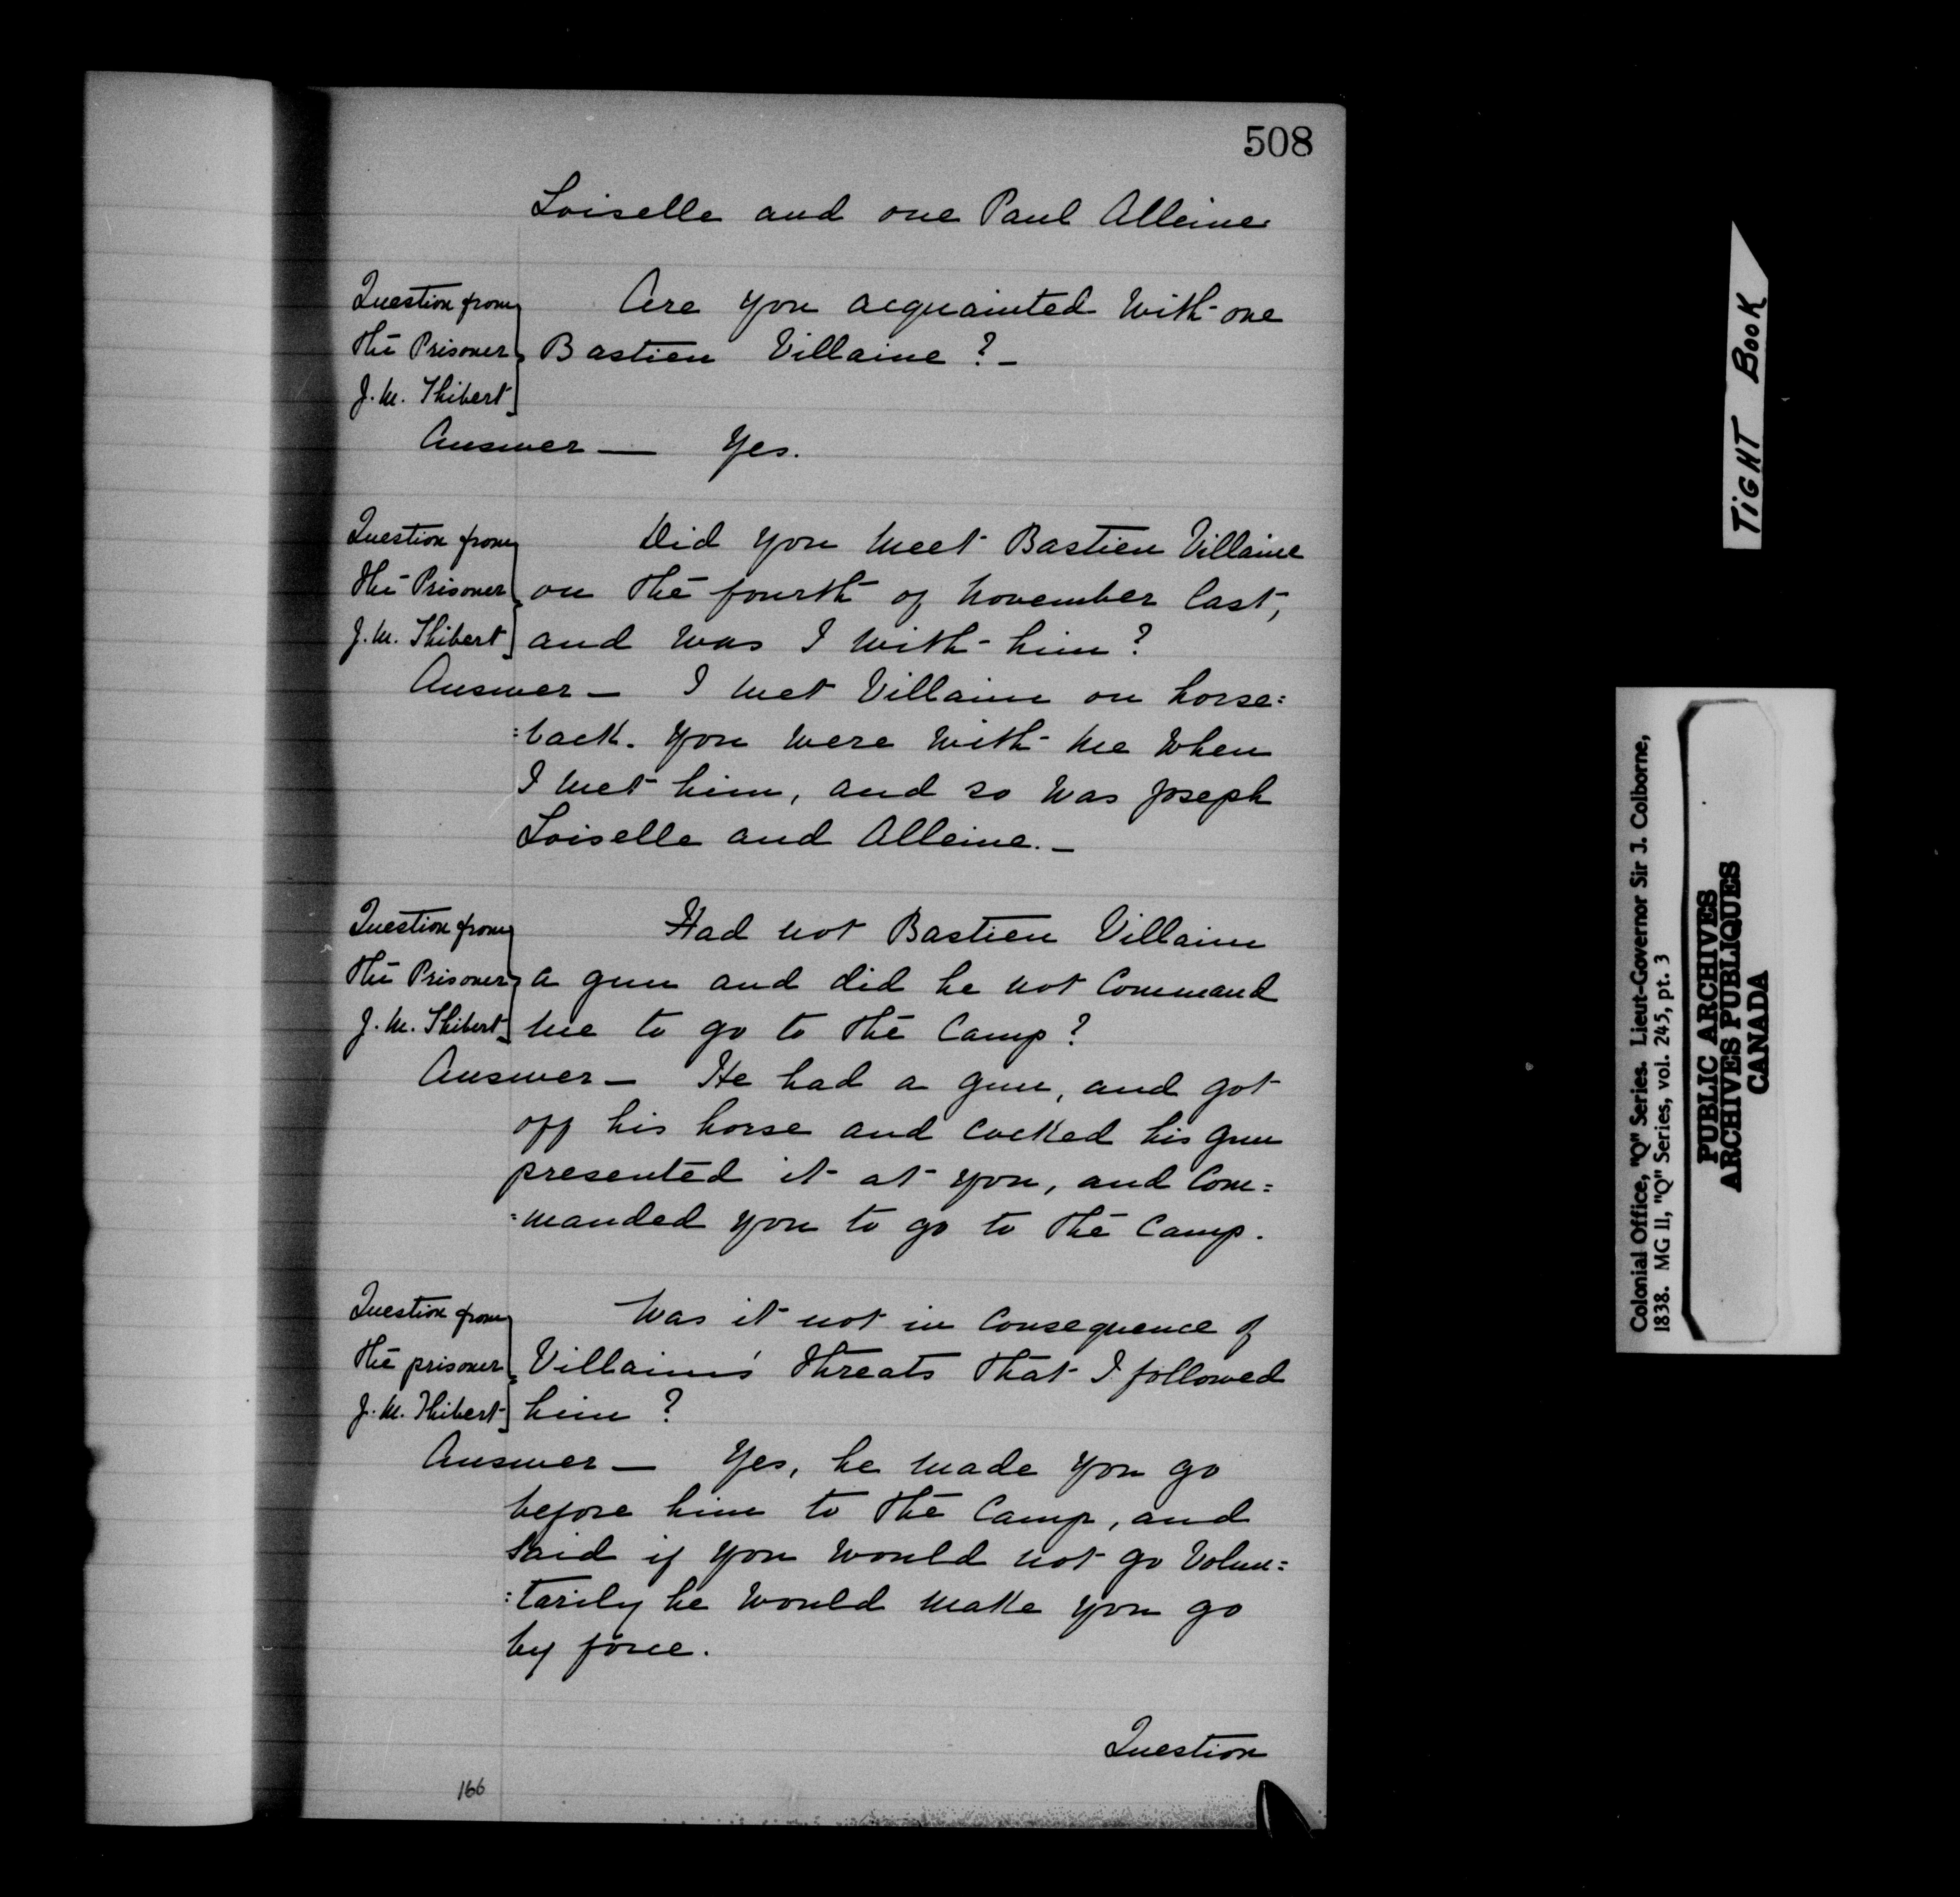 508
Loiselle and one Paul Alleine
Question from
the Prisoner
J. M. Thibert
Are you acquainted with one
Bastien Villaine ? –
Answer — Yes.
Question from
the Prisoner
J. M. Thibert
Did you meet Bastien Villaine
on the fourth of November last,
and was I with him ?
Answer – I met Villaine on horse=
=back. You were with me when
I met him, and so was Joseph
Loiselle and Alleine. –
Question from
the Prisoner
J. M. Thibert
Had not Bastien Villaine
a gun and did he not Command
me to go to the Camp ?
Answer – He had a gun, and got
off his horse and cocked his gun
presented it at you, and Com=
=manded you to go to the Camp.
Question from
the prisoner
J. M. Thibert
Was it not in Consequence of
Villaine's threats that I followed
him ?
Answer – Yes, he made you go
before him to the Camp, and
said if you would not go Volun=
=tarily he would make you go
by force.
Question
166
TIGHT BOOK
Colonial Office, "Q" Series. Lieut-Governor Sir J. Colborne,
1838. MG 11, "Q" Series, vol. 245, pt. 3
PUBLIC ARCHIVES
ARCHIVES PUBLIQUES
CANADA